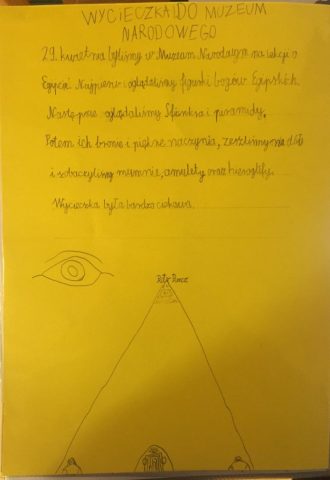 WYCIECZKA DO MUZEUM
NARODOWEGO
29 kwietnia byliśmy w Muzeum Narodowym na lekcji o
Egipcie. Najpierw oglądaliśmy figurki bogów Egipskich.
Następnie oglądaliśmy Sfinksa i piramidy.
Potem ich bronie i piękne naczynia, zeszliśmy na dół
i zobaczyliśmy mumie, amulety oraz hieroglify.
Wycieczka była bardzo ciekawa.